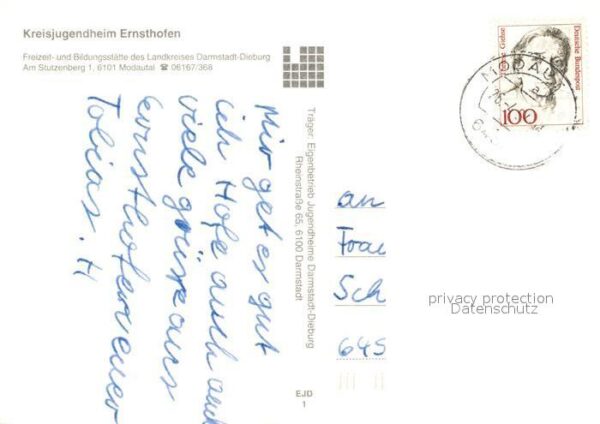 Kreisjugendheim Ernsthofen
Freizeit- und Bildungsstätte des Landkreises Darmstadt-Dieburg
Am Stutzenberg 1, 6101 Modautal ☎ 06167/368
Mir get es gut
ich Hofe auch euch
viele grüse aus
Ernsthofen euer
Tobias. H
Träger: Eigenbetrieb Jugendheime Darmstadt-Dieburg
Rheinstraße 65, 6100 Darmstadt
EJD
1
Deutsche Bundespost
Giehse
100
MODAU
an
Frau
Sch
645
privacy protection
Datenschutz